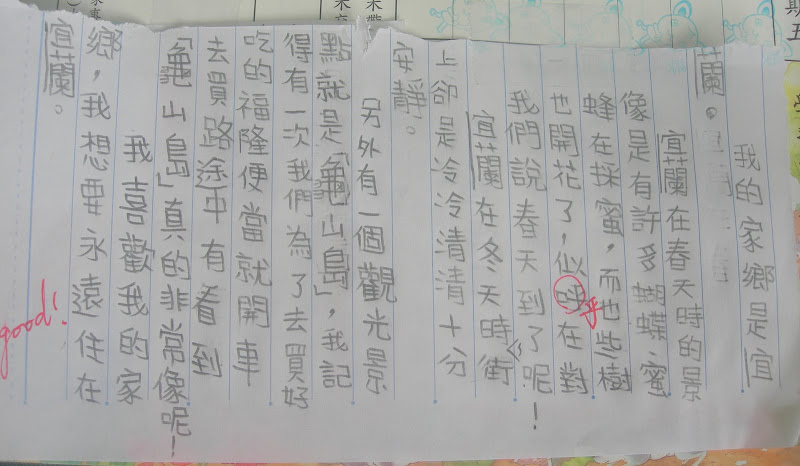 我的家鄉是宜
蘭。
宜蘭在春天時的景
像是有許多蝴蝶、蜜
蜂在採蜜，而也些樹
也開花了，似呼在對
乎
我們說春天到了呢！
宜蘭在冬天時街
上卻是冷冷清清十分
安靜。
另外有一個觀光景
點就是「龜山島」，我記
得有一次我們為了去買好
吃的福隆便當就開車
去買路途中有看到
「龜山島」真的非常像呢！
我喜歡我的家
鄉，我想要永遠住在
宜蘭。
good!
期五